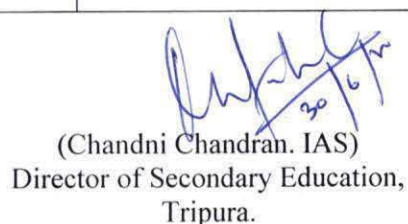 30/6/20
(Chandni Chandran. IAS)
Director of Secondary Education,
Tripura.